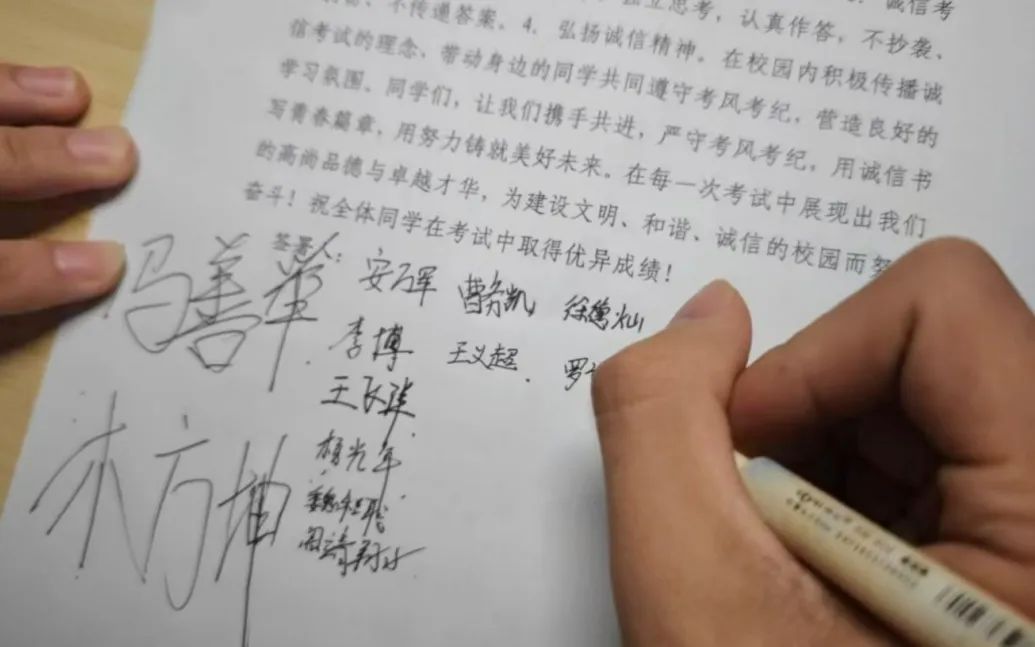 诚信考
独立思考，认真作答，不抄袭、
不传递答案、4. 弘扬诚信精神。在校园内积极传播诚
信考试的理念、带动身边的同学共同遵守考风考纪，营造良好的
学习氛围。同学们，让我们携手共进，严守考风考纪，用诚信书
写青春篇章，用努力铸就美好未来。在每一次考试中展现出我们
的高尚品德与卓越才华，为建设文明、和谐、诚信的校园而努
奋斗！祝全体同学在考试中取得优异成绩！
签署人：
冯善举 安万军 曹务凯 徐德灿
李博 王义超 罗
王
杨光年
方坤